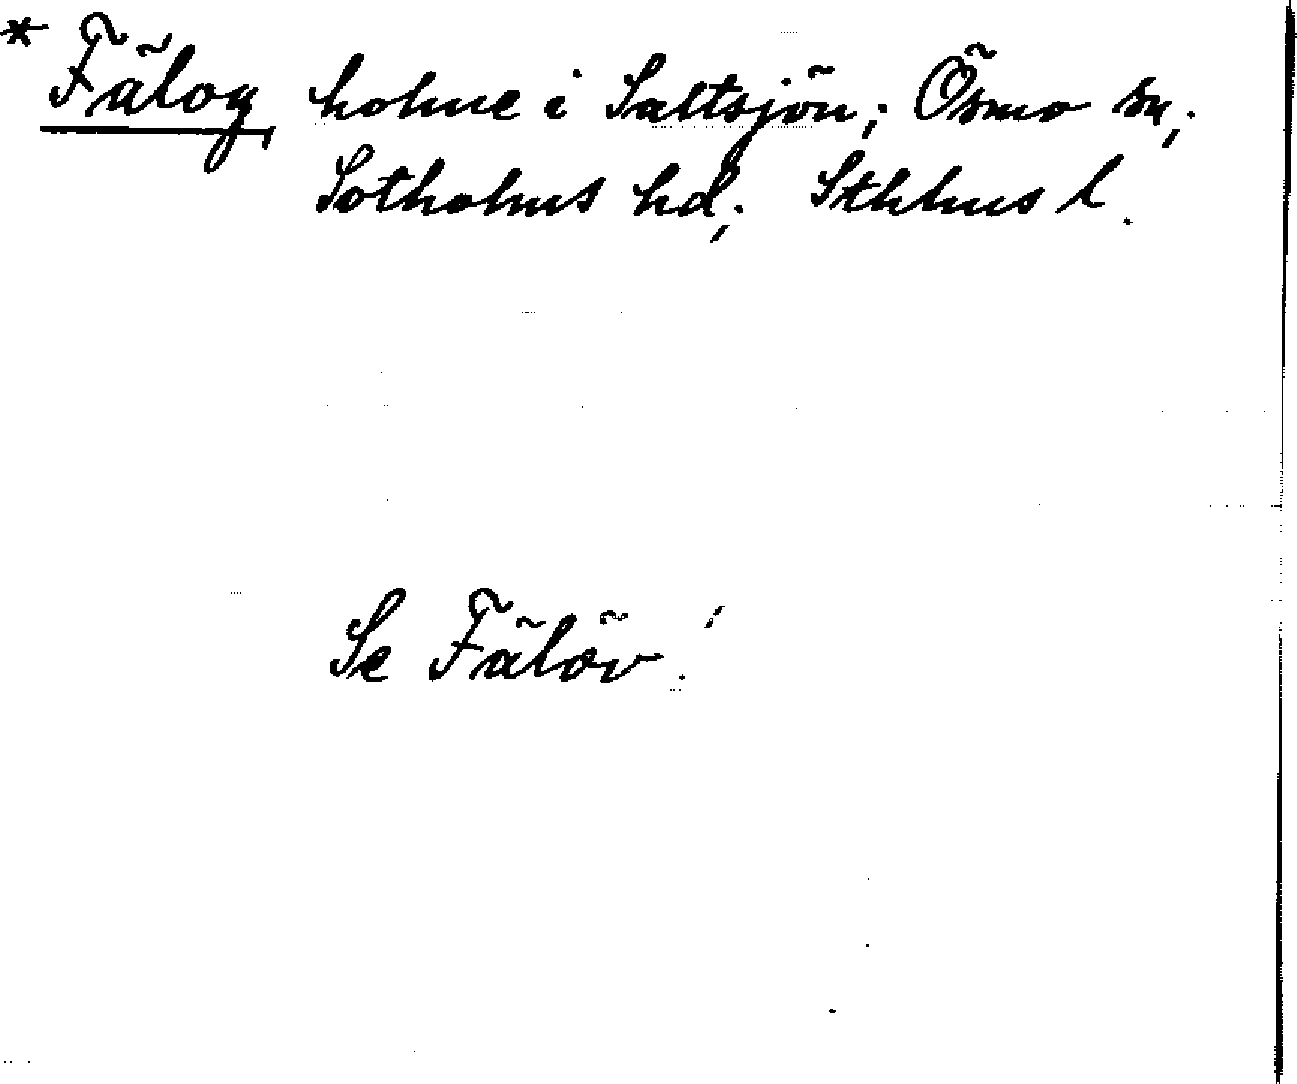 * Fälog holme i Saltsjön; Ösmo sn;
Sotholms hd; Sthlms l.
Se Fälöv!